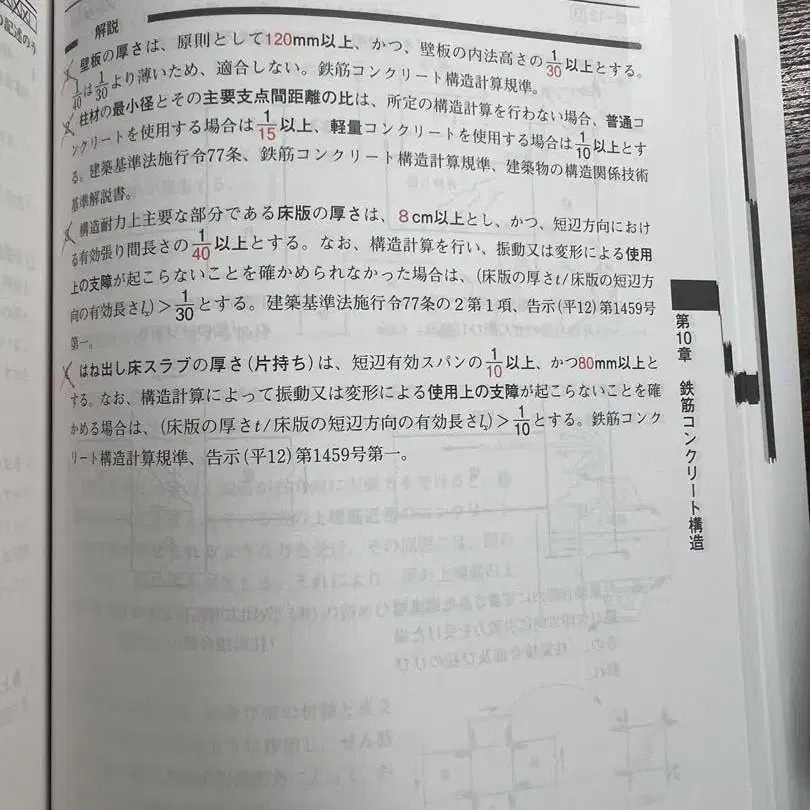 の記述のう
解説
壁板の厚さは、原則として120mm以上、かつ、壁板の内法高さの1/30以上とする。
1/40は1/30より薄いため、適合しない。鉄筋コンクリート構造計算規準。
柱材の最小径とその主要支点間距離の比は、所定の構造計算を行わない場合、普通コ
ンクリートを使用する場合は1/15以上、軽量コンクリートを使用する場合は1/10以上とす
る。建築基準法施行令77条、鉄筋コンクリート構造計算規準、建築物の構造関係技術
基準解説書。
構造耐力上主要な部分である床版の厚さは、8cm以上とし、かつ、短辺方向におけ
る有効張り間長さの1/40以上とする。なお、構造計算を行い、振動又は変形による使用
上の支障が起こらないことを確かめられなかった場合は、(床版の厚さt/床版の短辺方
向の有効長さlx)>1/30とする。建築基準法施行令77条の2第1項、告示(平12)第1459号
第一。
はね出し床スラブの厚さ(片持ち)は、短辺有効スパンの1/10以上、かつ80mm以上と
する。なお、構造計算によって振動又は変形による使用上の支障が起こらないことを確
かめる場合は、(床版の厚さt/床版の短辺方向の有効長さlx)>1/10とする。鉄筋コンク
リート構造計算規準、告示(平12)第1459号第一。
第10章 鉄筋コンクリート構造